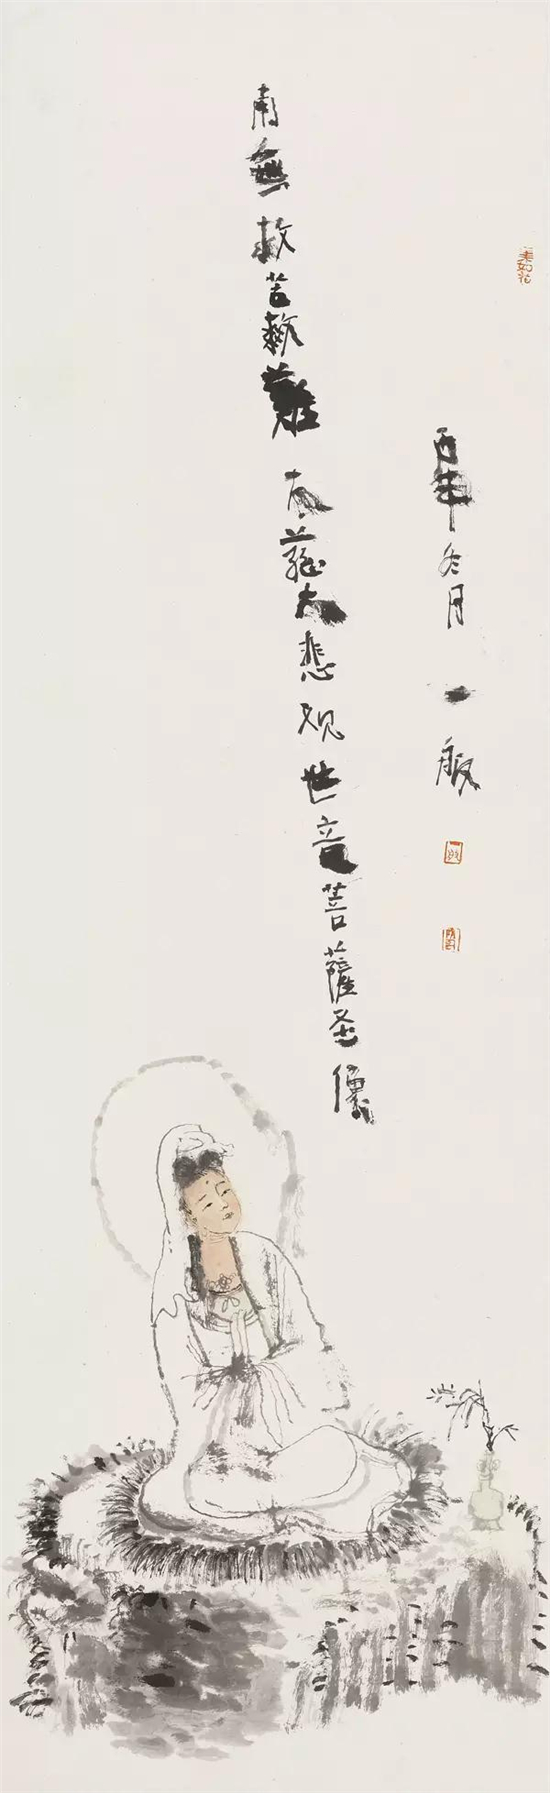 南無救苦救難大慈大悲观世音菩薩圣像
丙申冬月 一般